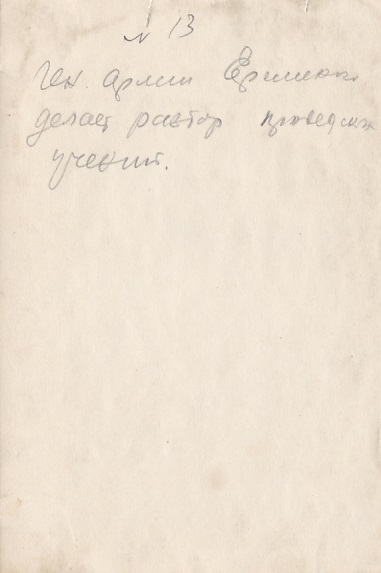 N 13
Ген. армии Еременко
делает разбор проведен
учений.